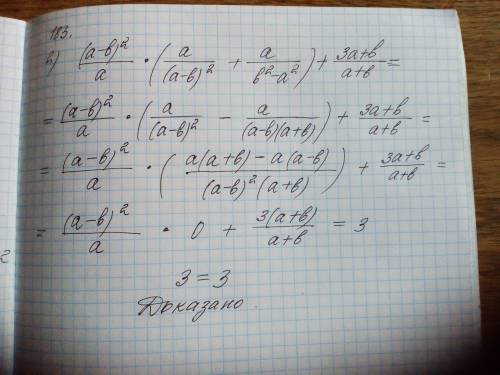 183.
2) (a-b)²/a · (a/(a-b)² + a/(b²-a²)) + (3a+b)/(a+b) =
= (a-b)²/a · (a/(a-b)² - a/((a-b)(a+b))) + (3a+b)/(a+b) =
= (a-b)²/a · ((a(a+b)-a(a-b))/((a-b)²(a+b))) + (3a+b)/(a+b) =
= (a-b)²/a · 0 + 3(a+b)/(a+b) = 3
3=3
Доказано.
2